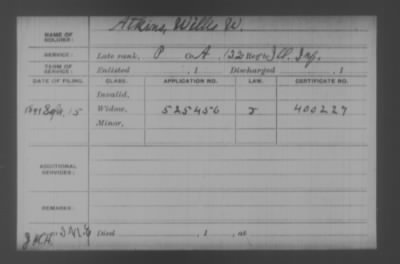 NAME OF SOLDIER: Atkins, Willis W.
SERVICE: Late rank, P Co A, 122 Reg't Ill. Inf.
TERM OF SERVICE: Enlisted , 1 Discharged , 1
DATE OF FILING. CLASS. APPLICATION NO. LAW. CERTIFICATE NO.
Invalid,
1891 Sept. 15 Widow, 525456 400227
Minor,
ADDITIONAL SERVICES:
REMARKS:
Died , 1 , at